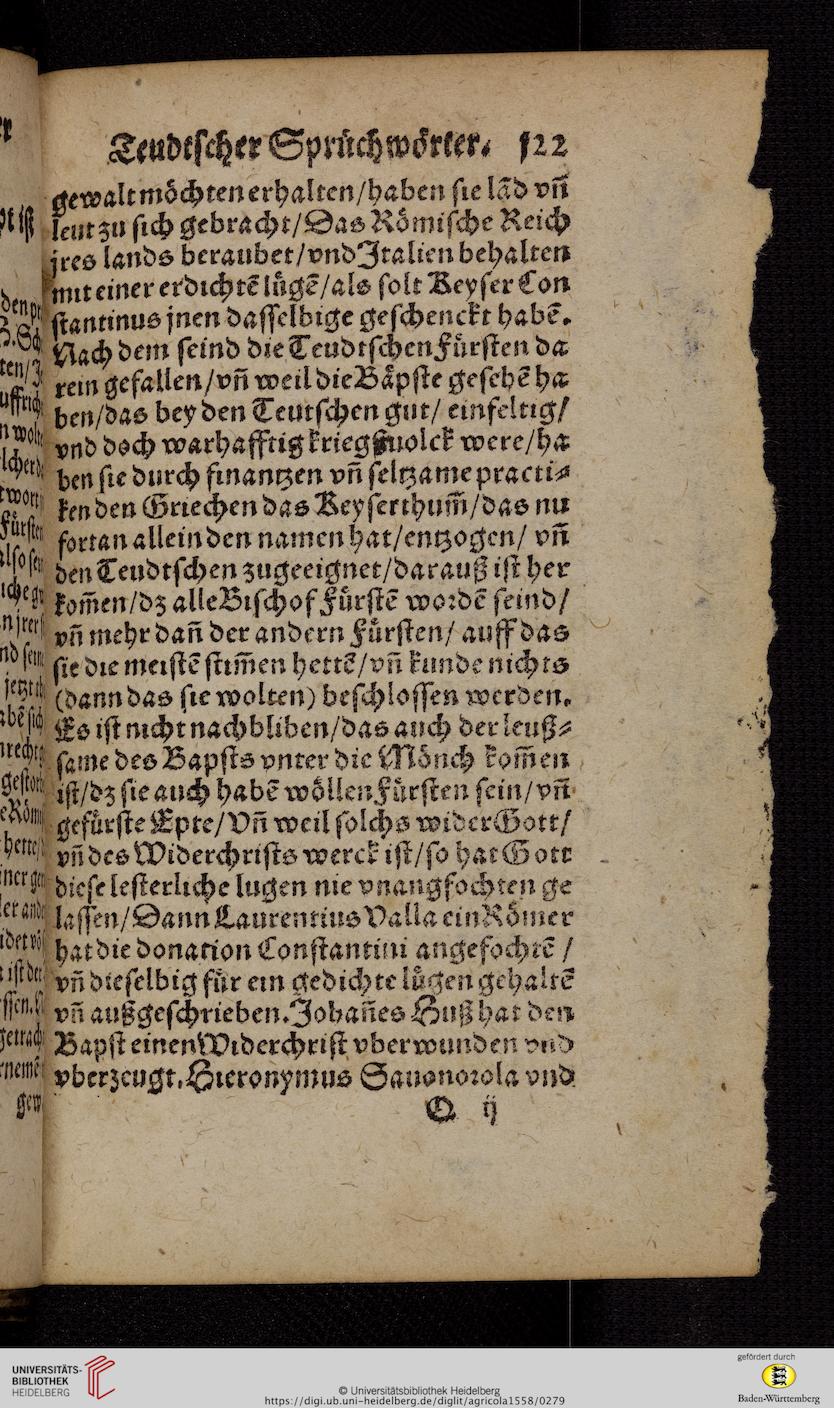 Teudtscher Sprüchwörter. 122
gewalt möchten erhalten/haben sie lãd vñ
leut zu sich gebracht/Das Römische Reich
jres lands beraubet/vnd Italien behalten
mit einer erdichtẽ lügẽ/als solt Keyser Con
stantinus jnen dasselbige geschenckt habẽ.
Nach dem seind die Teudtschen Fürsten da
rein gefallen/vñ weil die Bäpste gesehẽ ha
ben/das bey den Teutschen gut/ einfeltig/
vnd doch warhafftig kriegßuolck were/ha
ben sie durch finantzen vñ seltzame practi⸗
ken den Griechen das Keyserthum̃/das nu
fortan allein den namen hat/entzogen/ vñ
den Teudtschen zugeeignet/darauß ist her
kom̃en/dz alle Bischof Fürstẽ wordẽ seind/
vñ mehr dañ der andern Fürsten/ auff das
sie die meistẽ stim̃en hettẽ/vñ kunde nichts
(dann das sie wolten) beschlossen werden.
Es ist nicht nachbliben/das auch der leuß⸗
same des Bapsts vnter die Mönch kom̃en
ist/dz sie auch habẽ wöllen Fürsten sein/vñ
gefürste Epte/Vñ weil solchs wider Gott/
vñ des Widerchrists werck ist/so hat Gott
diese lesterliche lugen nie vnangfochten ge
lassen/Dann Laurentius Valla ein Römer
hat die donation Constantini angefochtẽ /
vñ dieselbig für ein gedichte lügen gehaltẽ
vñ außgeschrieben. Johañes Huß hat den
Bapst einen Widerchrist vberwunden vnd
vberzeugt. Hieronymus Sauonorola vnd
Q ij
UNIVERSITÄTS-
BIBLIOTHEK
HEIDELBERG
© Universitätsbibliothek Heidelberg
https://digi.ub.uni-heidelberg.de/diglit/agricola1558/0279
gefördert durch
Baden-Württemberg